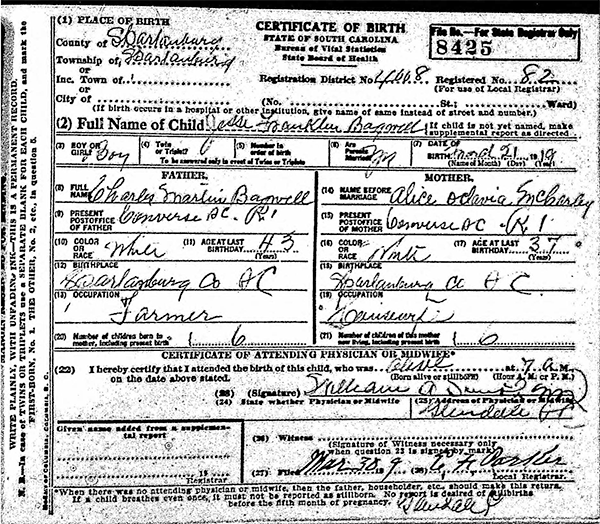 (1) PLACE OF BIRTH
County of Spartanburg
Township of Spartanburg
or
Inc. Town of
or
City of
CERTIFICATE OF BIRTH
STATE OF SOUTH CAROLINA
Bureau of Vital Statistics
State Board of Health
File No.—For State Registrar Only
8425
Registration District No. Registered No. 82
(For use of Local Registrar)
(No. St.; Ward)
(If birth occurs in a hospital or other institution, give name of same instead of street and number.
(2) Full Name of Child Jesse Franklin Bagwell
If child is not yet named, make
supplemental report as directed
(3) BOY OR GIRL? Boy
(4) Twin or Triplet?
(5) Number in order of birth
To be answered only in event of Twins or Triplets
(6) Are Parents Married?
(7) DATE OF BIRTH 21 1919
(Name of Month) (Day) (Year)
FATHER.
(8) FULL NAME Charles Martin Bagwell
(9) PRESENT POSTOFFICE OF FATHER Converse SC R1
(10) COLOR OR RACE White
(11) AGE AT LAST BIRTHDAY 43 (Years)
(12) BIRTHPLACE
Spartanburg Co SC
(13) OCCUPATION
Farmer
(20) Number of children born to mother, including present birth 6
MOTHER.
(14) NAME BEFORE MARRIAGE Alice Octavia
(15) PRESENT POSTOFFICE OF MOTHER Converse SC R1
(16) COLOR OR RACE White
(17) AGE AT LAST BIRTHDAY 37 (Years)
(18) BIRTHPLACE
Spartanburg Co SC
(19) OCCUPATION
Housewife
(21) Number of children of this mother now living, including present birth 6
CERTIFICATE OF ATTENDING PHYSICIAN OR MIDWIFE*
(22) I hereby certify that I attended the birth of this child, who was alive at 7 a M.
on the date above stated. (Born alive or stillborn) (Hour A. M. or P. M.)
(23) (Signature) William
(24) State whether Physician or Midwife
(25) Address of Physician or Midwife
Glendale SC
Given name added from a supplemental report
19
Registrar
(26) Witness
(Signature of Witness necessary only
when question 23 is signed by mark)
(27) Filed Mar
(28)
Local Registrar.
Glendale
*When there was no attending physician or midwife, then the father, householder, etc. should make this return.
If a child breathes even once, it must not be reported as stillborn. No report is desired of stillbirths
before the fifth month of pregnancy.
WRITE PLAINLY, WITH UNFADING INK—THIS IS A PERMANENT RECORD.
N. B.—In case of TWINS OR TRIPLETS use a SEPARATE BLANK FOR EACH CHILD, and mark the
FIRST-BORN, No. 1. THE OTHER, No. 2, etc. in question 5.